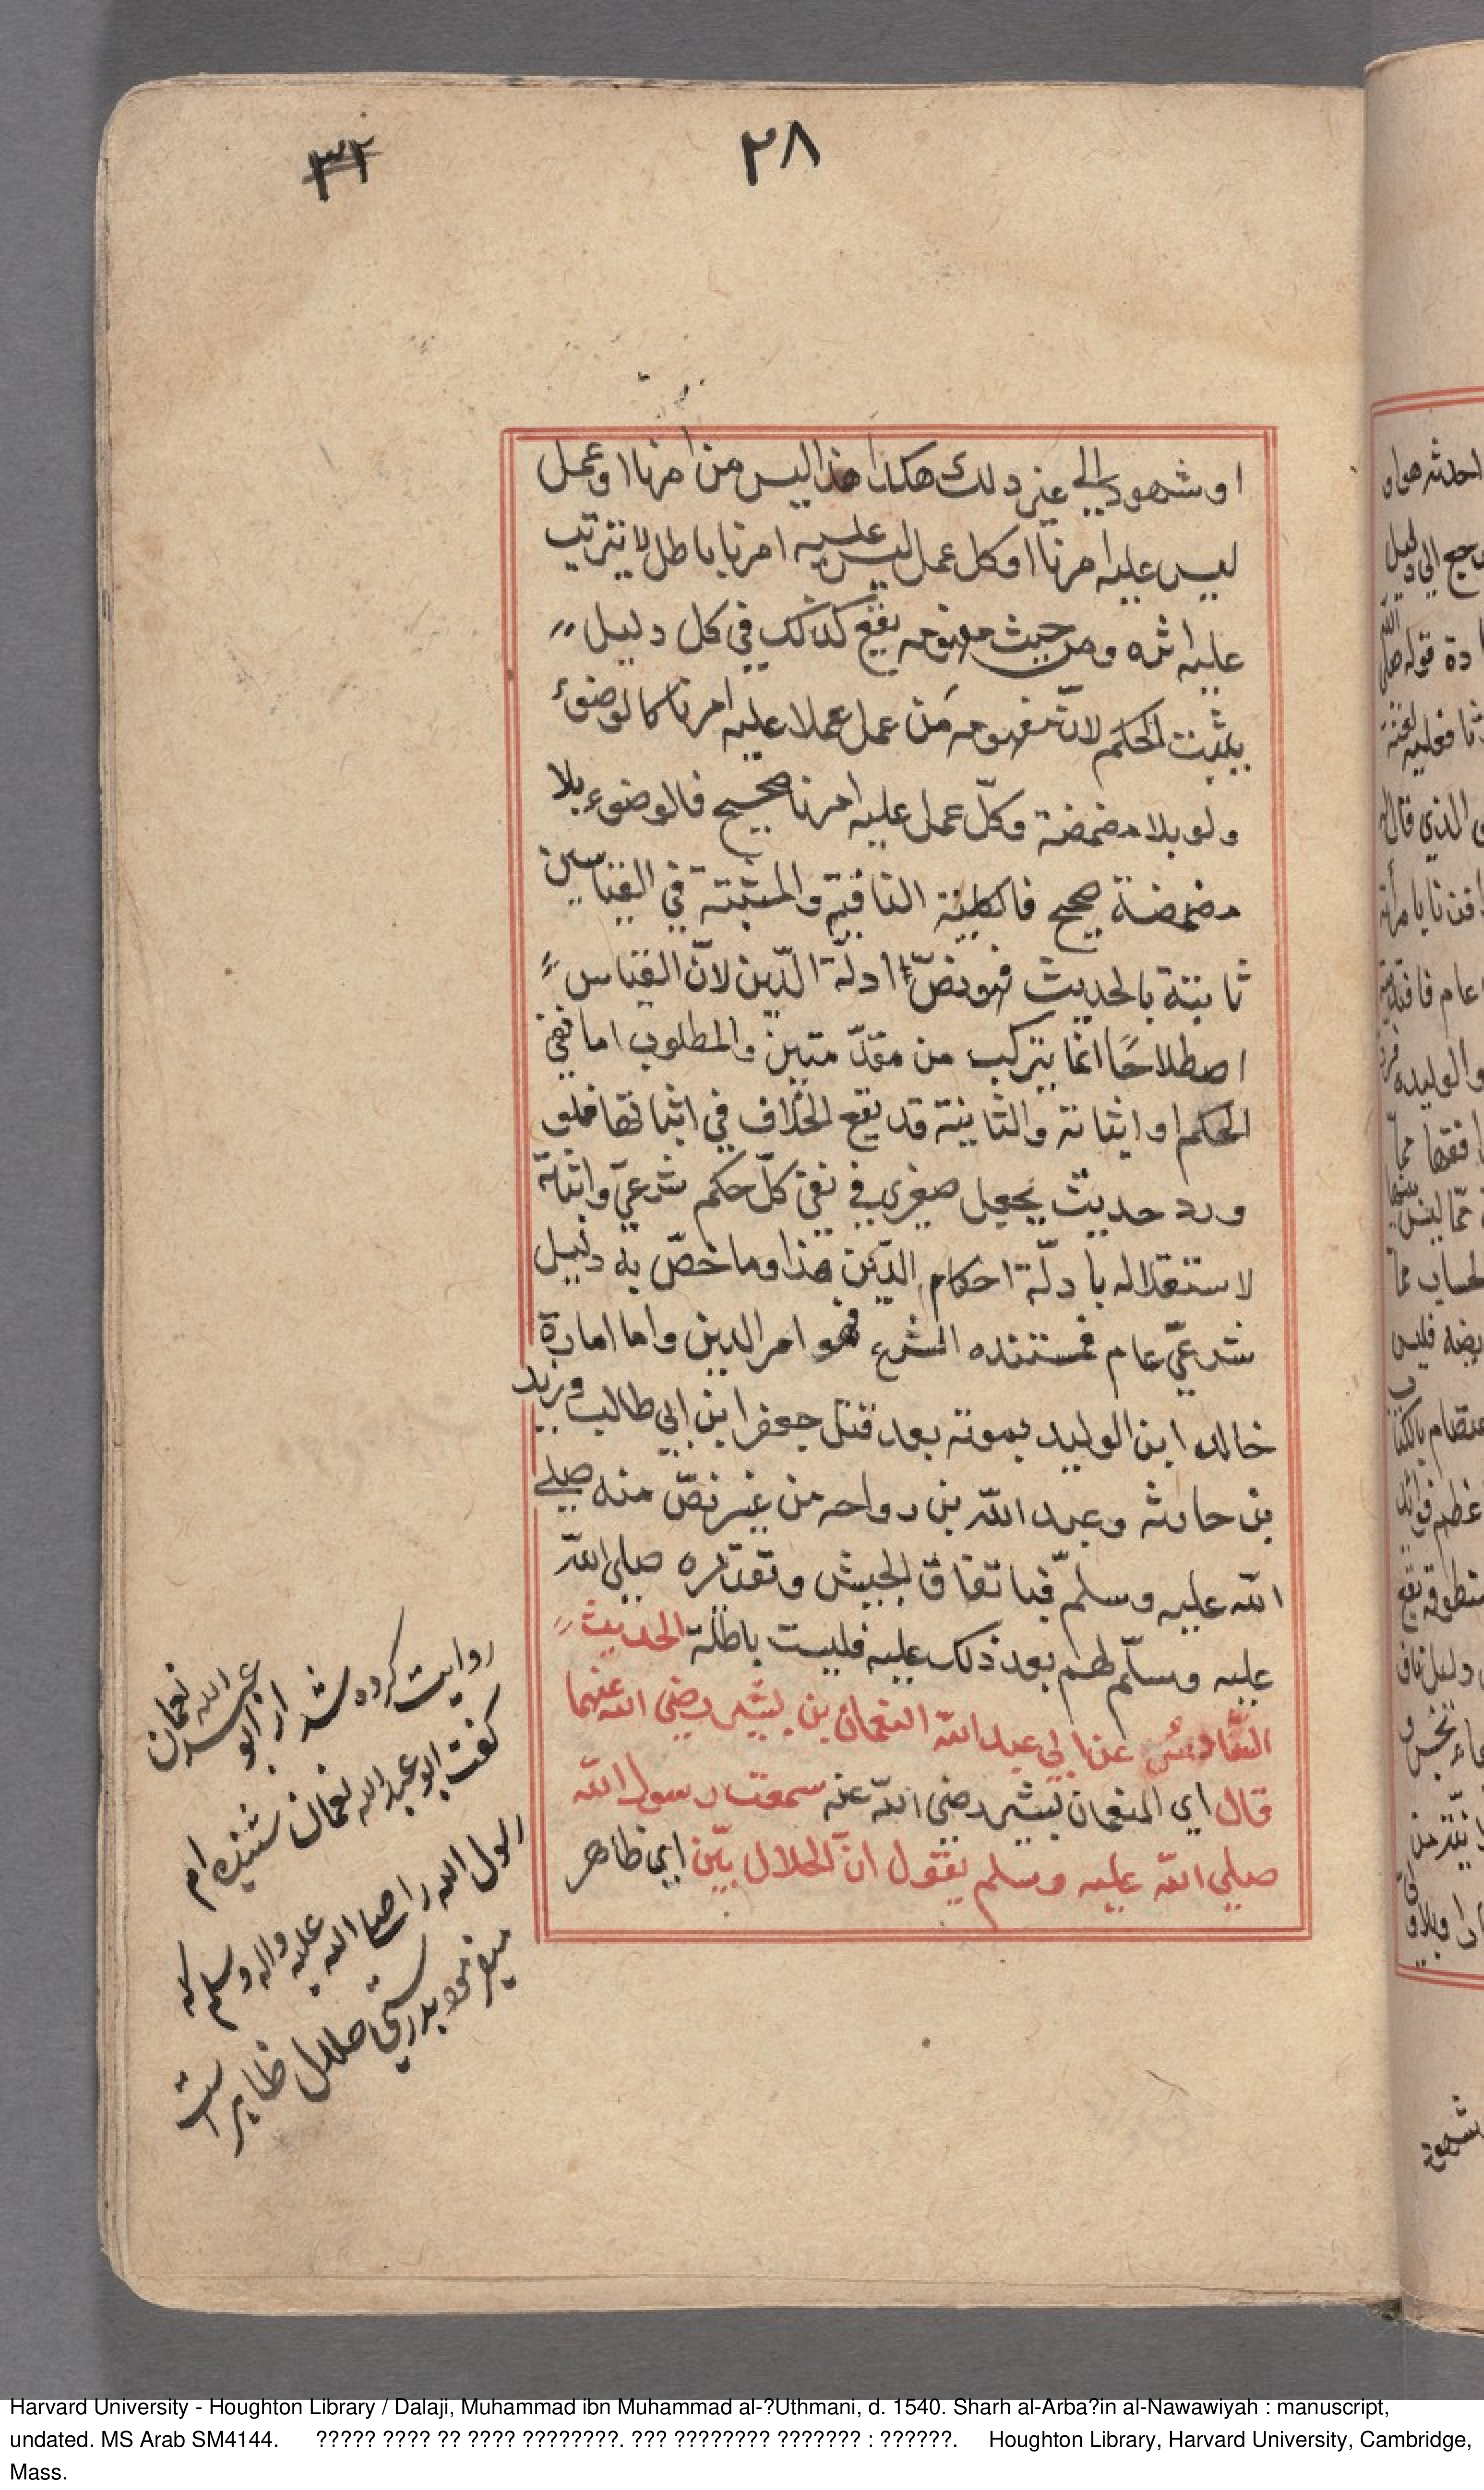 ٢٨
٣٢
او شهود الي غير ذلك هكذا هذا ليس من امرنا او عمل
ليس عليه امرنا او كل عمل ليس عليه امرنا باطل لا يترتب
عليه اثره ومن حيث مفهومه يقع كذلك في كل دليل
يثبت الحكم لانّ مفهومه مَن عمل عملا عليه امرنا كالوضوء
ولو بلا مضمضة وكلّ عمل عليه امرنا صحيح فالوضوء بلا
مضمضة صحيح فالكلية النافية والمثبتة في القياسين
ثابتة بالحديث فهو نصّ ادلّة الدّين لانّ القياس
اصطلاحًا انّما يتركب من مقدّمتين والمطلوب اما نفي
الحكم او اثباته والثانية قد يقع الخلاف في اثباتها فلو
ورد حديث يجعل صغرى في نفي كلّ حكم شرعيّ واثباته
لاستقلاله بادلّة احكام الدّين هذا وما خصّ به دليل
شرعيّ عام فمستنده الشرع فهو امر الدين واما امارة
خالد ابن الوليد بموته بعد قتل جعفر ابن ابي طالب وزيد
بن حارثه وعبد اللّه بن رواحه من غير نصّ منه صلي
اللّه عليه وسلّم فباتفاق الجيش وتقريره صلي اللّه
عليه وسلّم لهم بعد ذلك عليه فليست باطلة الحديث
السّادسُ عن ابي عبد اللّه النعمان بن بشير رضي اللّه عنهما
قال اي النعمان بشير رضي اللّه عنه سمعت رسول اللّه
صلي اللّه عليه وسلم يقول انّ الحلال بيّن اي ظاهر
روايت كرده شد از ابو عبد الله نعمان
كفت ابو عبد الله نعمان شنيده ام
رسول الله را صلى الله عليه واله وسلم كه
ميفرمود بدرستي حلال ظاهر است
Harvard University - Houghton Library / Dalaji, Muhammad ibn Muhammad al-?Uthmani, d. 1540. Sharh al-Arba?in al-Nawawiyah : manuscript,
undated. MS Arab SM4144. ????? ???? ?? ???? ????????. ??? ???????? ??????? : ??????. Houghton Library, Harvard University, Cambridge,
Mass.